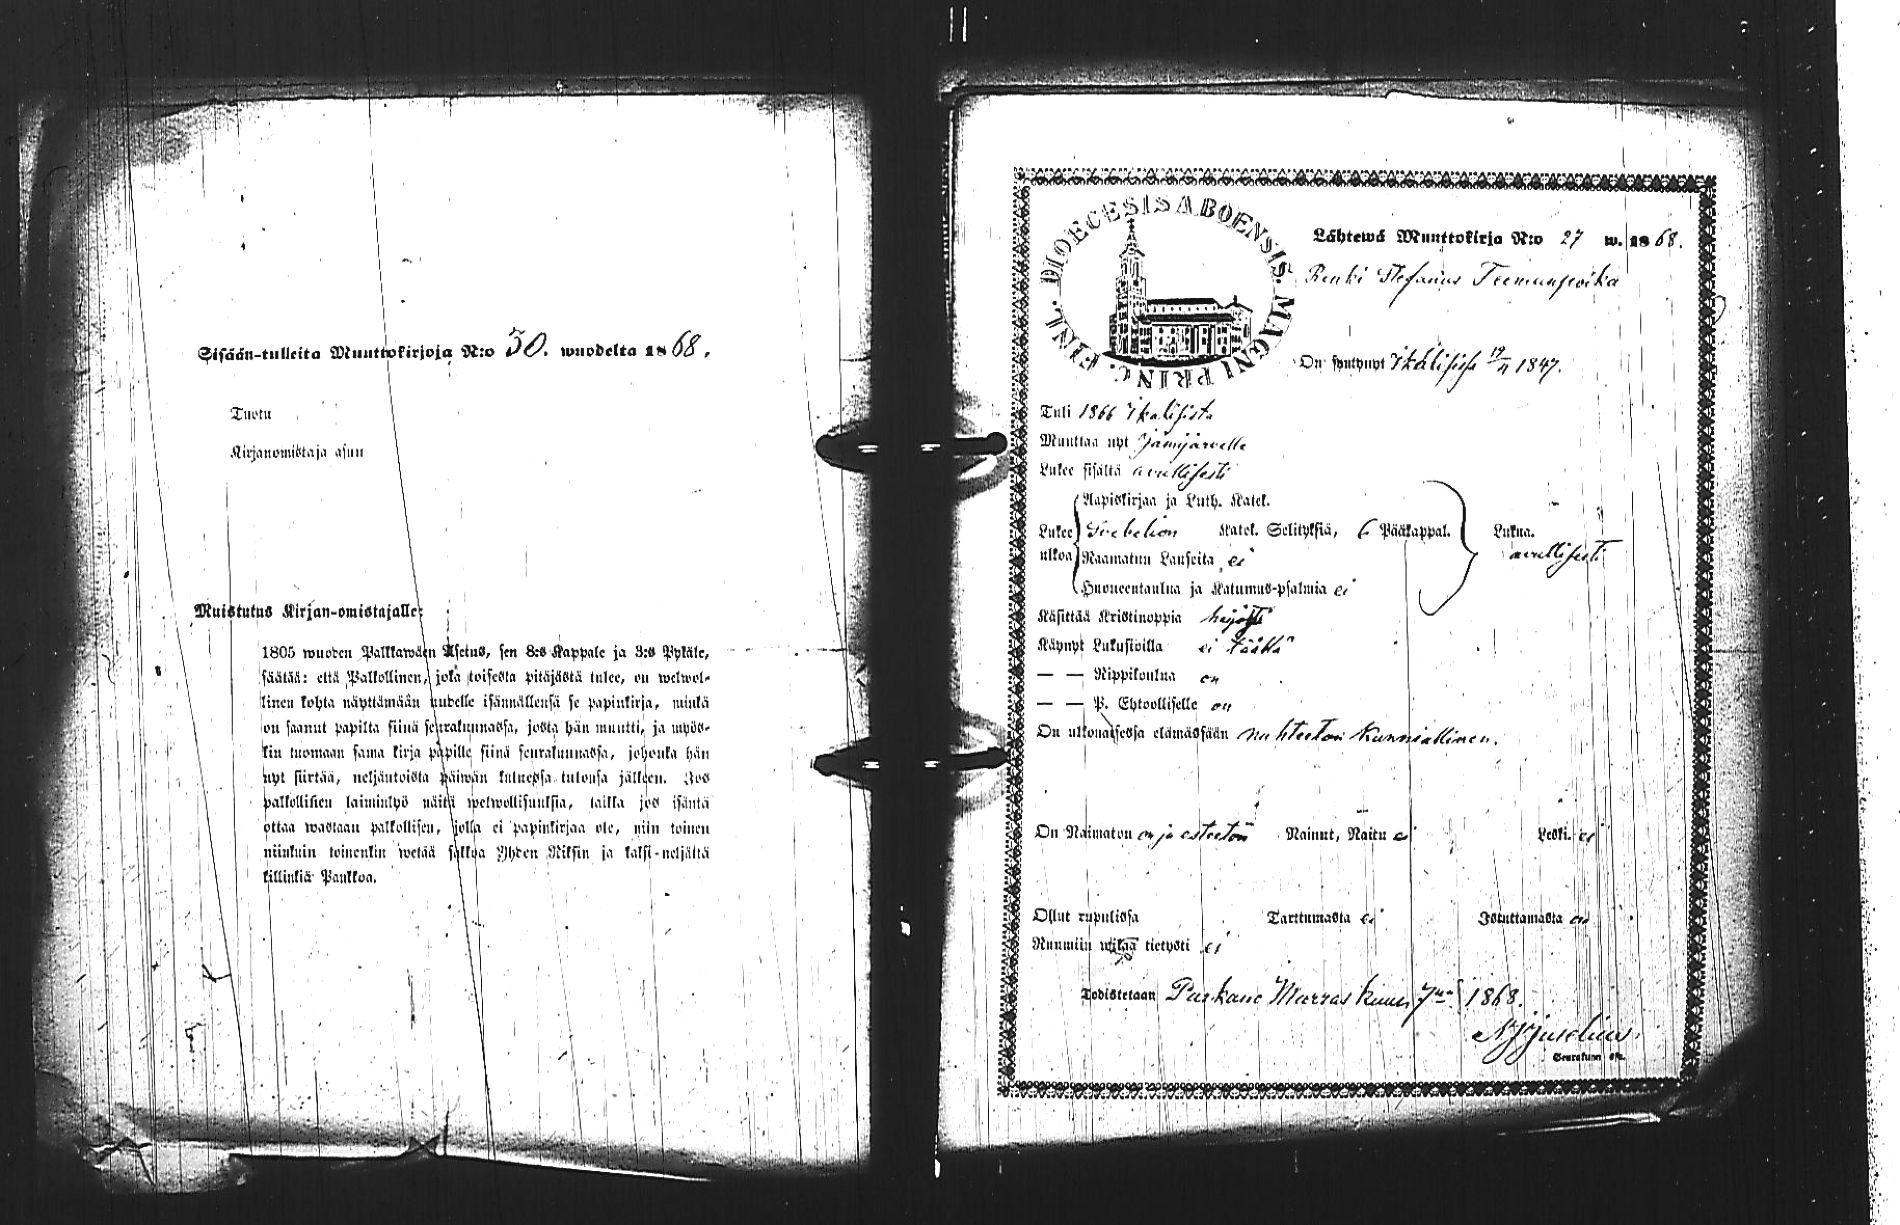 Sisään-tulleita Muuttokirjoja N:o 30. wuodelta 1868.
Tuotu
Kirjanomistaja asuu
Muistutus Kirjan-omistajalle:
1805 wuoden Palkkawäen Asetus, sen 8:s Kappale ja 3:s Pykäle,
säätää: että Palkollinen, joka toisesta pitäjästä tulee, on welwol-
linen kohta näyttämään uudelle isännällensä se papinkirja, minkä
on saanut papilta siinä seurakunnassa, josta hän muutti, ja myös-
kin tuomaan sama kirja papille siinä seurakunnassa, johonka hän
nyt siirtää, neljäntoista päiwän kuluessa tulonsa jälkeen. Jos
palkollisen laiminlyö näitä welwollisuuksia, taikka jos isäntä
ottaa wastaan palkollisen, jolla ei papinkirjaa ole, niin toinen
niinkuin toinenkin wetää sakkoa Yhden Riksin ja kaksi-neljättä
killinkiä Pankkoa.
DIOECESIS ABOENSIS. MAGNI PRINC. FINL.
Lähtewä Muuttokirja N:o 27 w. 1868.
Renki Stefanus Teemunpoika
On syntynyt Ikalisissa 19/11 1847.
Tuli 1866 Ikalisista
Muuttaa nyt Jämijärvelle
Lukee sisältä avullisesti
Aapiskirjaa ja Luth. Katek.
Lukee ulkoa Svebelion Katek. Selityksiä, 6 Pääkappal. Lukua.
Raamatun Lauseita ei avullisesti
Huoneentaulua ja Katumus-psalmia ei
Käsittää Kristinoppia heijosti
Käynyt Lukusioilla ei täällä
— — Rippikoulua on
— — P. Ehtoolliselle on
On ulkonaisessa elämässään nuhteeton kunniallinen.
On Naimaton on ja esteetön Nainut, Naitu ei Leski. ei
Ollut rupulissa Tarttumasta ei Istuttamasta on
Ruumiin wikaa tietysti ei
Todistetaan Parkano Marraskuun 7nä 1868.
Juselius.